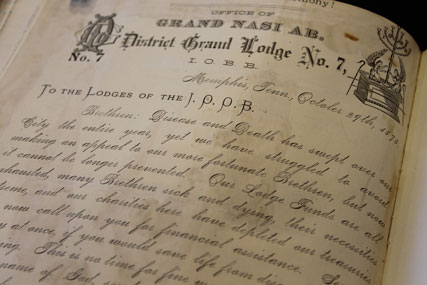 OFFICE OF
GRAND NASI AB.
District Grand Lodge No. 7,
No. 7
I. O. B. B.
Memphis, Tenn, October 29th, 187
TO THE LODGES OF THE I. O. O. B.
Brethren: Disease and Death has swept over our
City the entire year, yet we have struggled to avoid
making an appeal to our more fortunate Brethren, but now
it cannot be longer prevented. Our Lodge Funds are all
exhausted, many Brethren sick and dying, their necessities
and our charities here have depleted our treasuries.
now call upon you for financial assistance.
at once, if you would save life from
This is no time for fine
name of God,